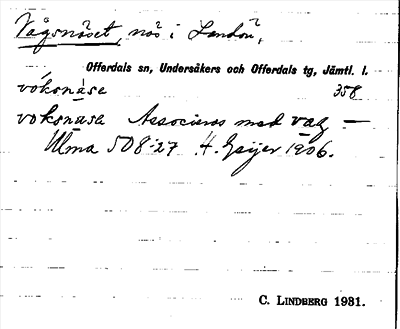 Vågsnäset, näs i Landön,
Offerdals sn, Undersåkers och Offerdals tg, Jämtl. l.
vóksnäse 358
voksnäsa Associeras med våg –
Ulma 508:27 H. Geijer 1906.
C. Lindberg 1931.